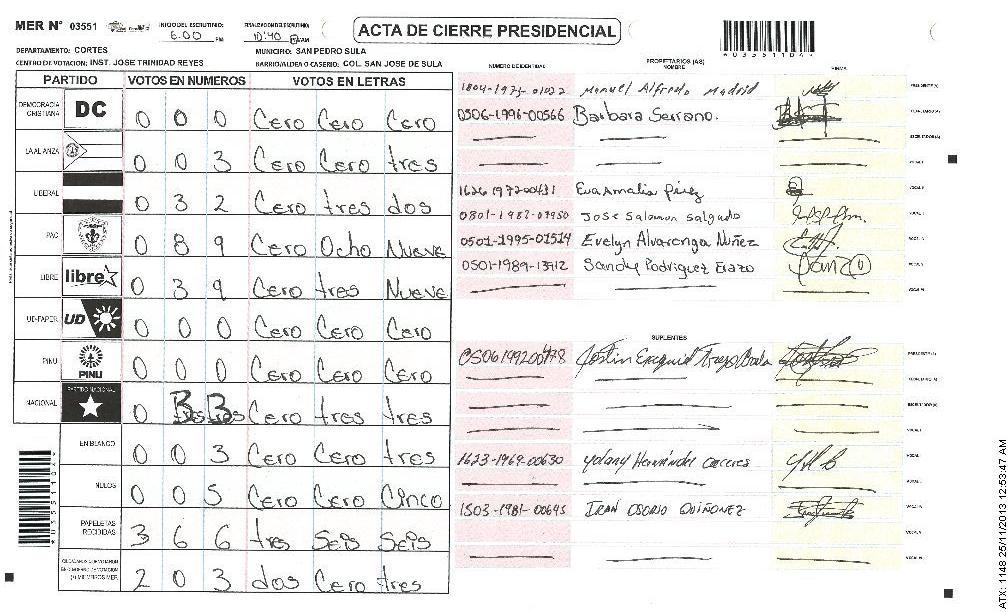 MER N° 03551 INICIO DEL ESCRUTINIO: 6:00 PM FINALIZACION DEL ESCRUTINIO: 10:40 ACTA DE CIERRE PRESIDENCIAL
DEPARTAMENTO: CORTES MUNICIPIO: SAN PEDRO SULA
CENTRO DE VOTACION: INST. JOSE TRINIDAD REYES BARRIO/ALDEA O CASERIO: COL. SAN JOSE DE SULA
PARTIDO VOTOS EN NUMEROS VOTOS EN LETRAS
DEMOCRACIA CRISTIANA DC 0 0 0 Cero Cero Cero
LA ALIANZA 0 0 3 Cero Cero tres
LIBERAL 0 3 2 Cero tres dos
PAC 0 8 9 Cero Ocho Nueve
LIBRE libre 0 3 9 Cero tres Nueve
UD-FAPER UD 0 0 0 Cero Cero Cero
PINU PINU 0 0 0 Cero Cero Cero
NACIONAL PARTIDO NACIONAL 0 3 3 Cero tres tres
EN BLANCO 0 0 3 Cero Cero tres
NULOS 0 0 5 Cero Cero Cinco
PAPELETAS RECIBIDAS 3 6 6 tres Seis Seis
2 0 3 dos Cero tres
NUMERO DE IDENTIDAD PROPIETARIOS (AS) NOMBRE FIRMA
Manuel Alfredo Madrid PRESIDENTE (A)
0506-1996-00566 Barbara Serrano.
Eva Amalia Pérez
José Salomon Salgado
0501-1995-01514 Evelyn Alvarenga Nuñez
Sandy Rodriguez Erazo
SUPLENTES
PRESIDENTE (A)
1623-1969-00630 Yolany Hernández Caceres
1503-1981-00645 IRAN OSORIO QUIÑONEZ
ATX: 1148 25/11/2013 12:53:47 AM